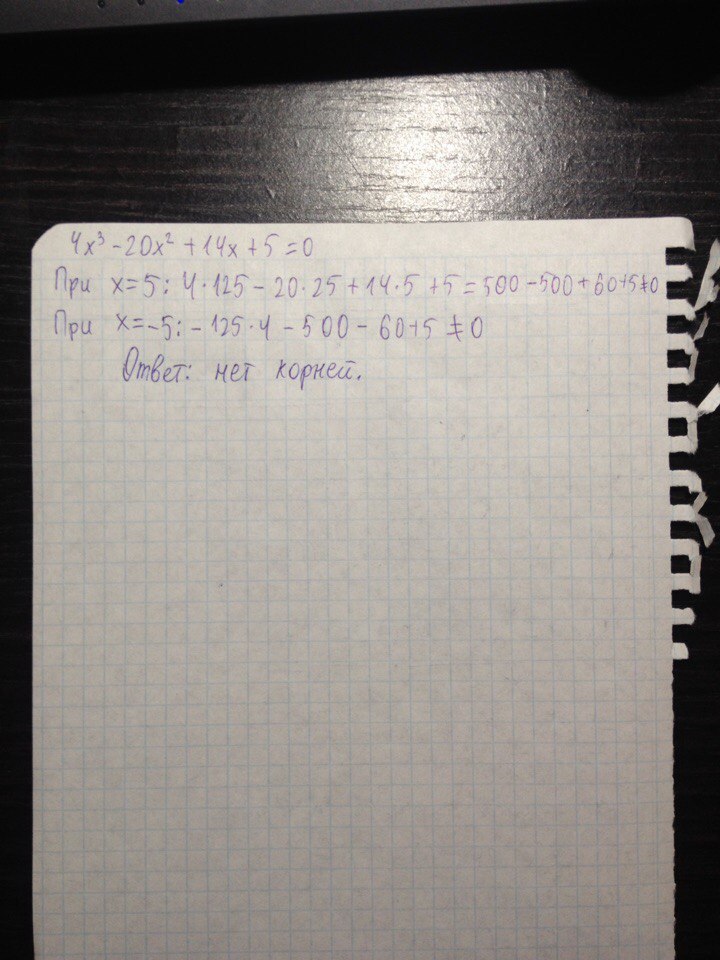 4x³ - 20x² + 14x + 5 = 0
При x = 5: 4·125 - 20·25 + 14·5 + 5 = 500 - 500 + 60 + 5 ≠ 0
При x = -5: - 125·4 - 500 - 60 + 5 ≠ 0
Ответ: нет корней.